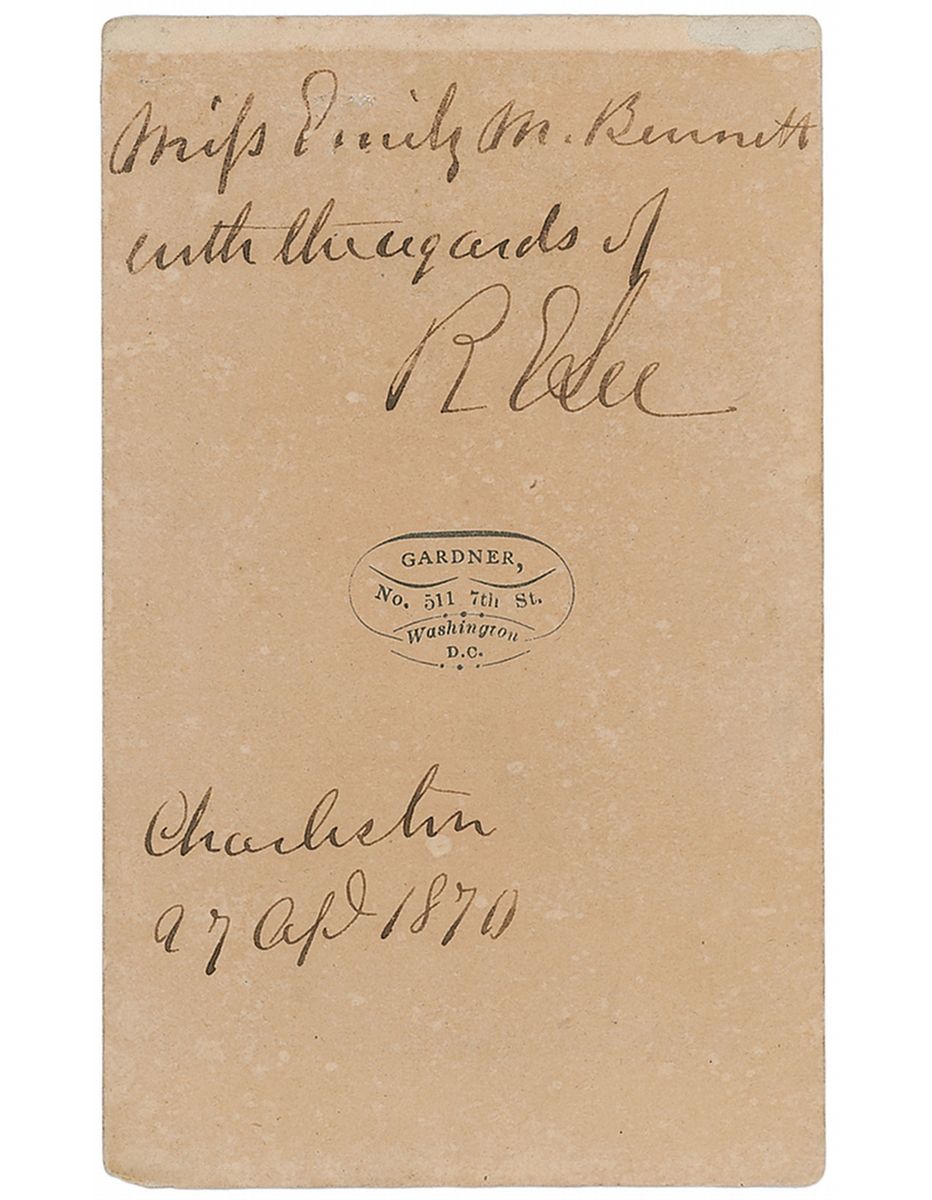 Miss Emily M. Bennett
with the regards of
R E Lee
GARDNER,
No. 511 7th St.
Washington
D.C.
Charleston
27 Apl 1870